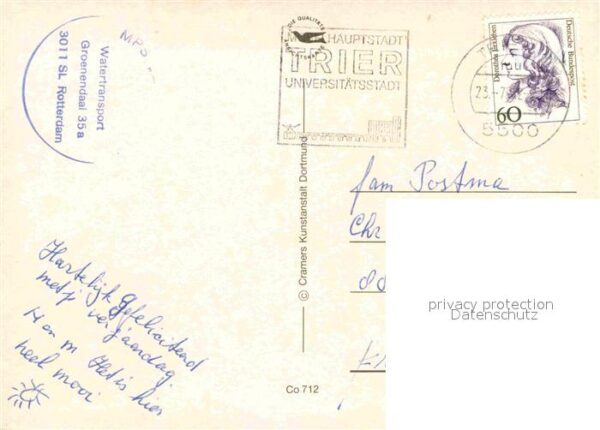 Watertransport
Groenendaal 35a
3011 SL Rotterdam
MPS
DIE QUALITÄT
HAUPTSTADT
TRIER
UNIVERSITÄTSSTADT
23.-7
5500
Deutsche Bundespost
60
© Cramers Kunstanstalt Dortmund
Co 712
fam Postma
Chr
Hartelijk gefeliciteerd
met je verjaardag.
H en M Het is hier
heel mooi
privacy protection
Datenschutz